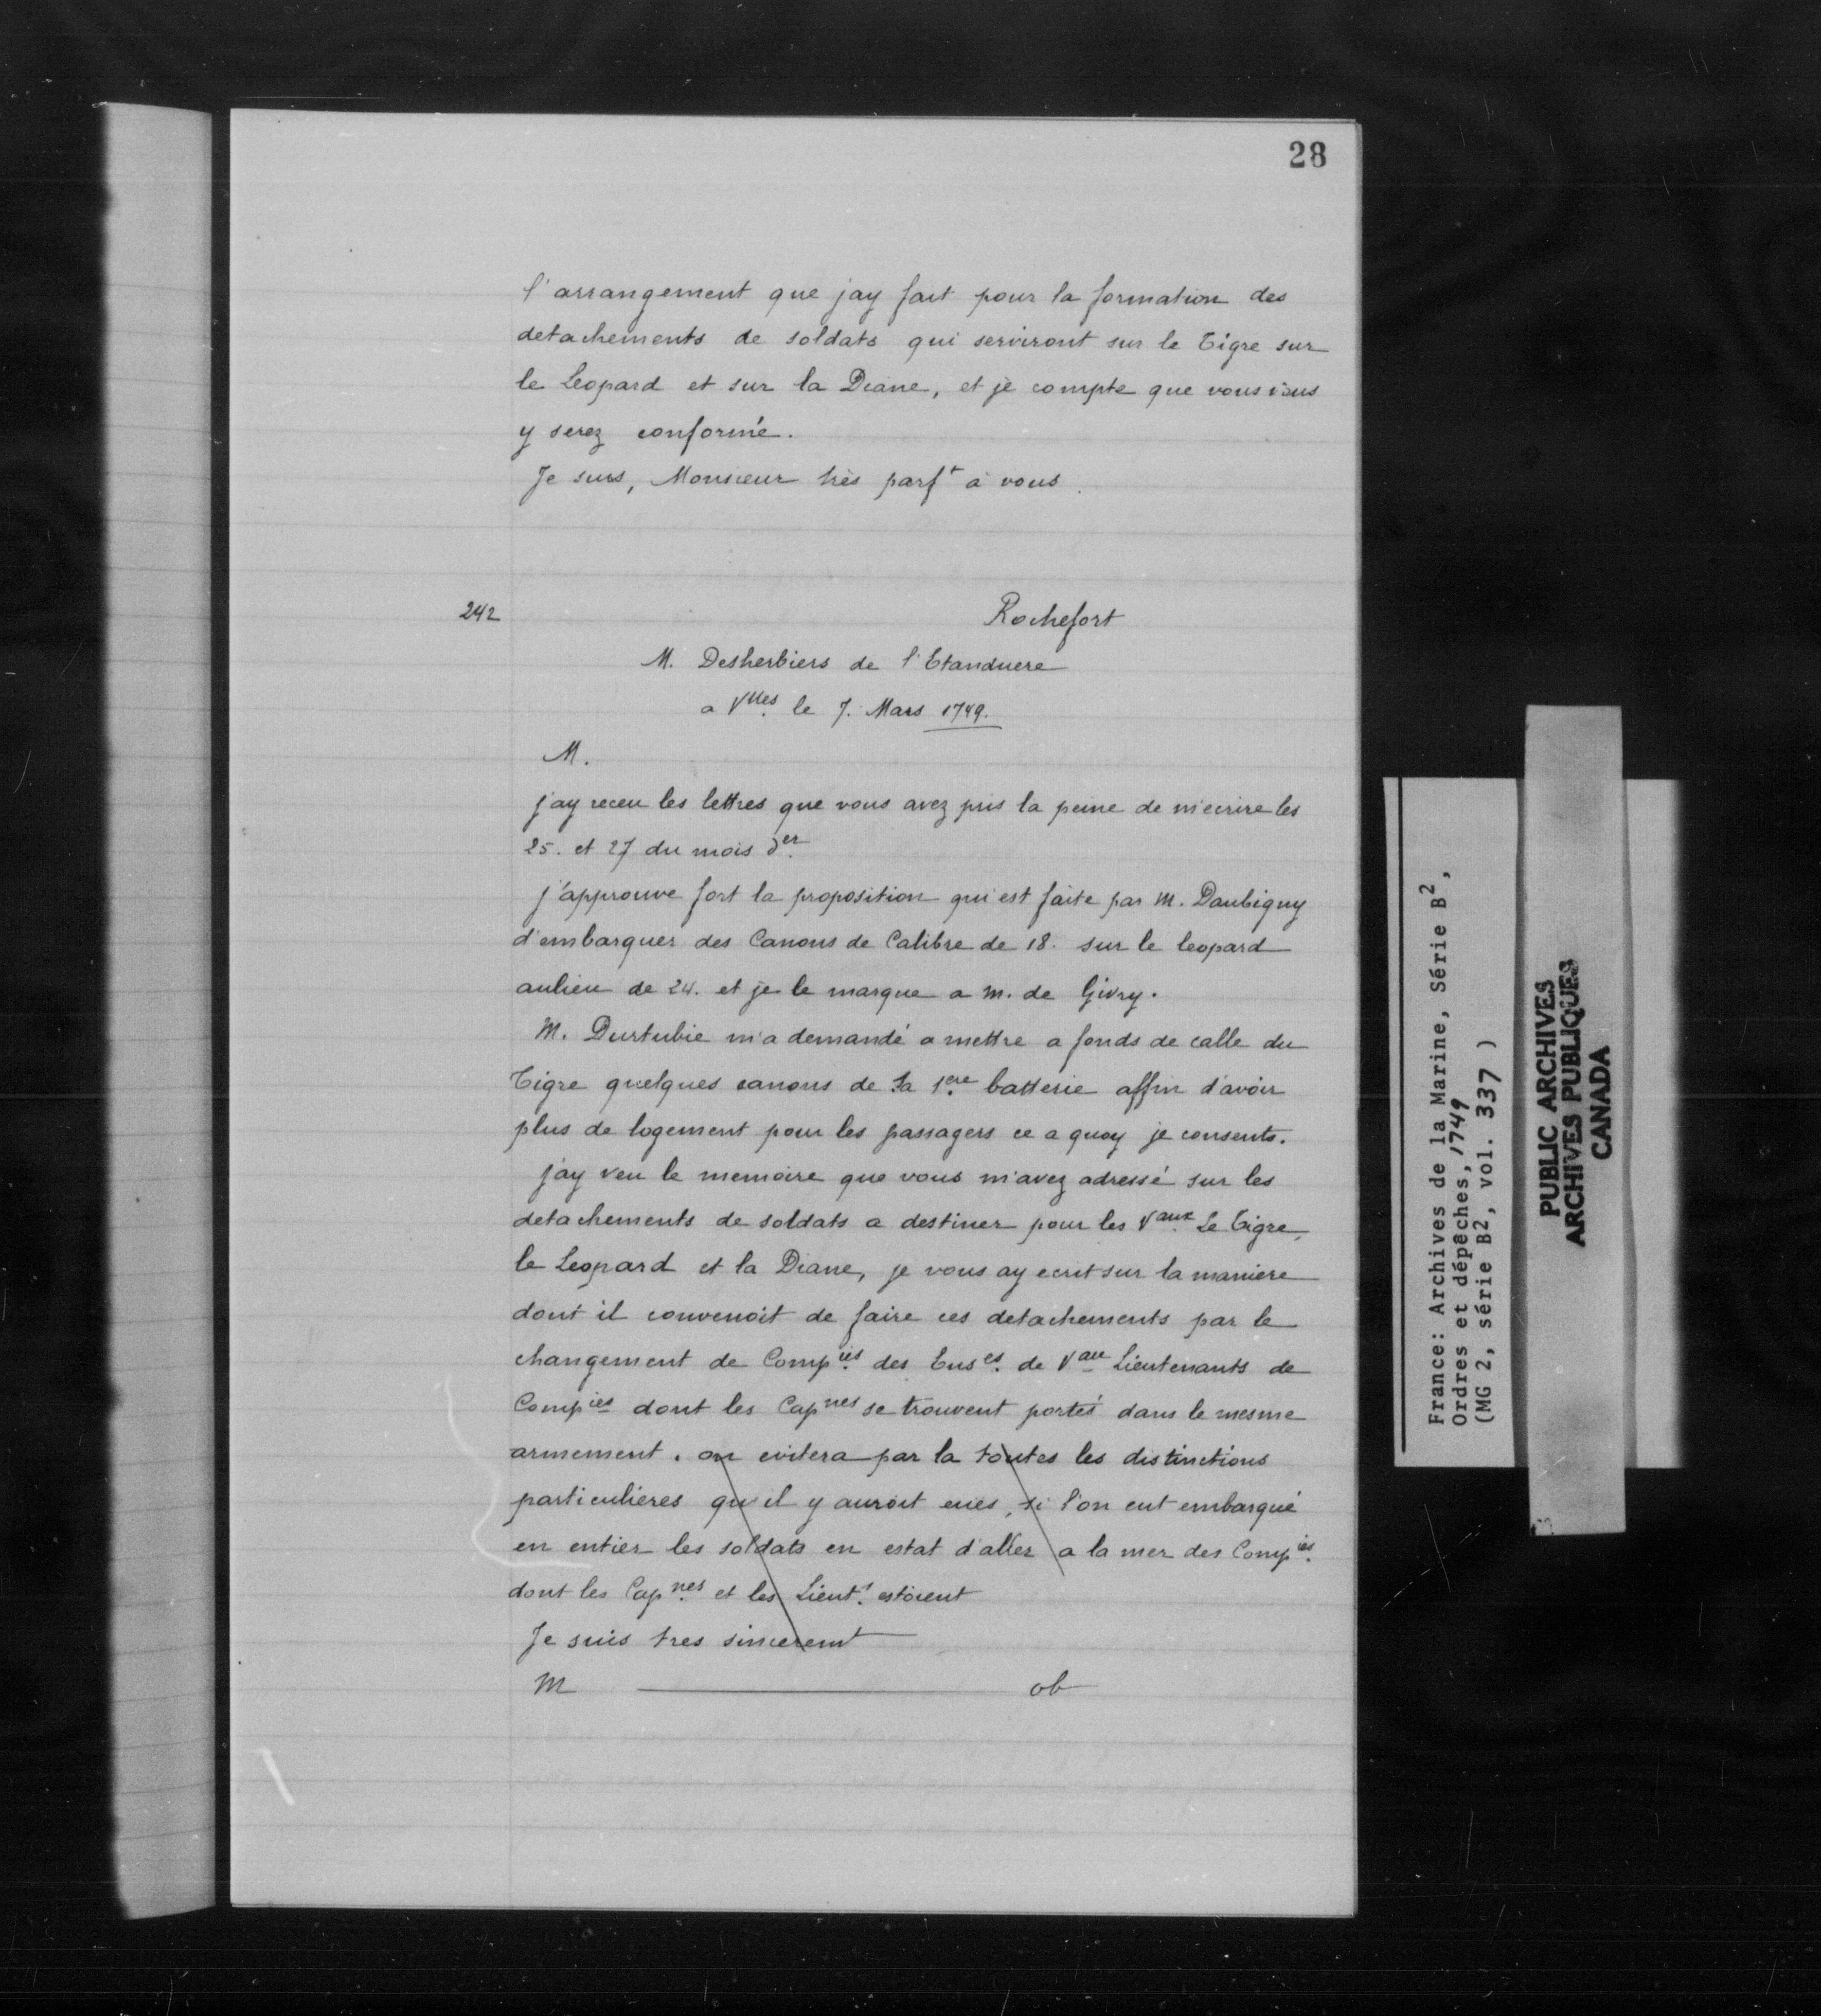 28
l'arrangement que jay fait pour la formation des
detachements de soldats qui serviront sur le Tigre sur
le Leopard et sur la Diane, et je compte que vous vous
y serez conformé.
Je suis, Monsieur très parft à vous.
242
Rochefort
M. Desherbiers de l'Etanduere
a Vlles le 7. Mars 1749.
M.
j'ay receu les lettres que vous avez pris la peine de m'ecrire les
25. et 27 du mois der
j'approuve fort la proposition qui est faite par M. Daubigny
d'embarquer des Canons de Calibre de 18. sur le leopard
aulieu de 24. et je le marque a m. de Givry.
M. Durtubie m'a demandé a mettre a fonds de calle du
Tigre quelques canons de la 1ere batterie affin d'avoir
plus de logement pour les passagers ce a quoy je consents.
j'ay veu le memoire que vous m'avez adressé sur les
detachements de soldats a destiner pour les Vaux Le Tigre,
le Leopard et la Diane, je vous ay ecrit sur la maniere
dont il convenoit de faire ces detachements par le
changement de Compies des Enses de Vau Lieutenants de
Compies dont les Capnes se trouvent portés dans le mesme
armement. on evitera par la toutes les distinctions
particulieres qu'il y auroit eues, si l'on eut embarqué
en entier les soldats en estat d'aller a la mer des Compies
dont les Capnes et les Lients estoient
Je suis tres sinceremt
M ob
France: Archives de la Marine, Série B2,
Ordres et dépêches, 1749
(MG 2, série B2, vol. 337 )
PUBLIC ARCHIVES
ARCHIVES PUBLIQUES
CANADA